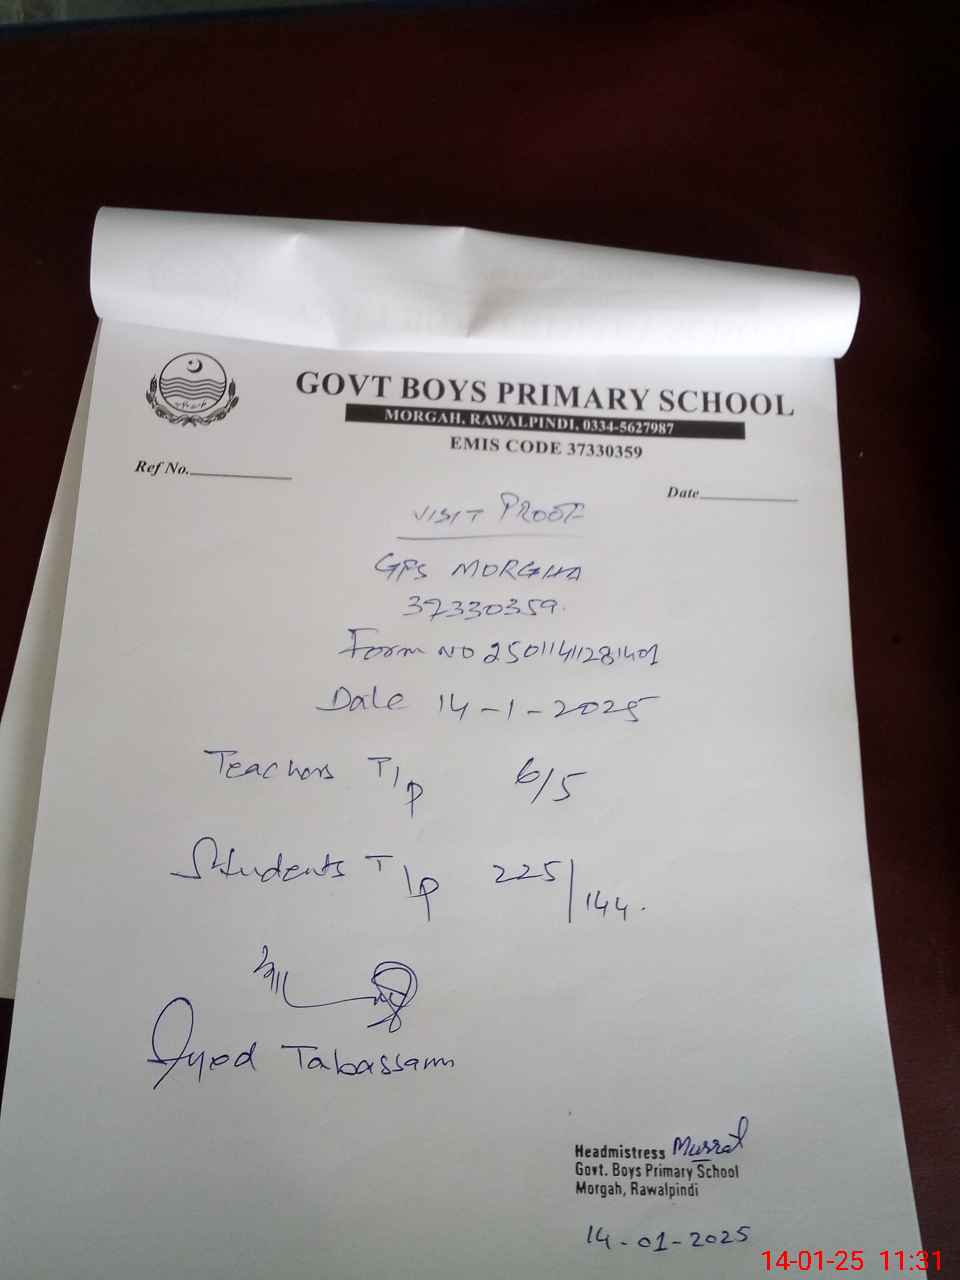 GOVT BOYS PRIMARY SCHOOL
MORGAH, RAWALPINDI, 0334-5627987
EMIS CODE 37330359
Ref No.
Date
VISIT PROOF
GPS MORGHA
37330359.
Form NO 25011411281401
Date 14-1-2025
Teachers T/P 6/5
Students T/P 225/144.
Syed Tabassam
Headmistress
Govt. Boys Primary School
Morgah, Rawalpindi
14-01-2025
14-01-25 11:31